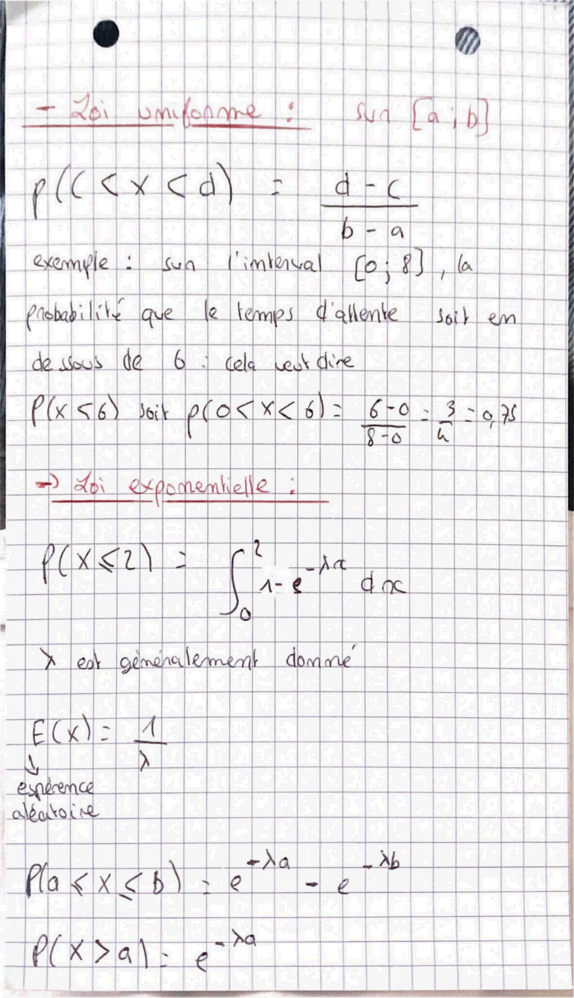 - Loi uniforme : sur [a ; b]
p(c < x < d) = \frac{d - c}{b - a}
exemple : sur l'interval [0 ; 8], la
probabilité que le temps d'attente soit en
dessous de 6 : cela veut dire
P(x < 6) soit p(0 < x < 6) = \frac{6-0}{8-0} = \frac{3}{4} = 0,75
→ Loi exponentielle :
P(X ⩽ 2) = \int_0^2 1 - e^{-λx} dx
λ est généralement donné
E(x) = \frac{1}{λ}
↓
espérence
aléatoire
P(a ⩽ X ⩽ b) = e^{-λa} - e^{-λb}
P(X > a) = e^{-λa}